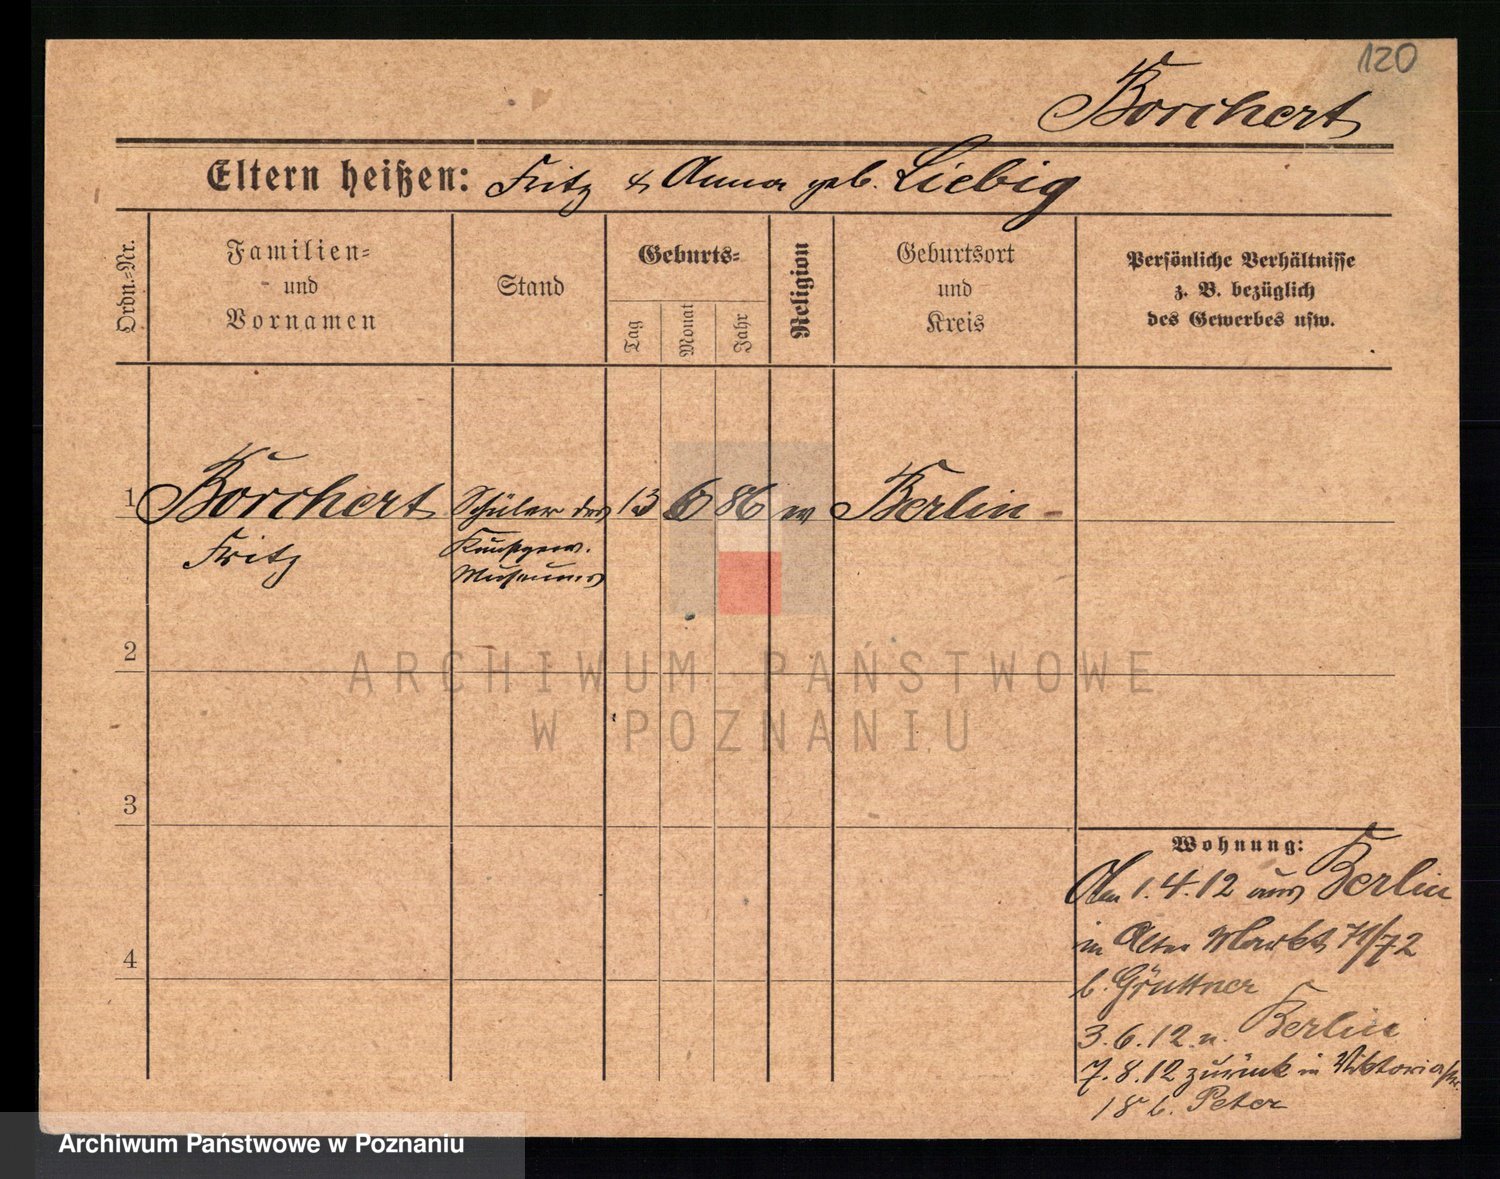 120
Borchert
Eltern heißen: Fritz & Anna geb. Liebig
Ordn.-Nr.
Familien-
und
Vornamen
Stand
Geburts-
Tag
Monat
Jahr
Religion
Geburtsort
und
Kreis
Persönliche Verhältnisse
z. B. bezüglich
des Gewerbes usw.
1 Borchert Schüler des 13 6 86 ev Berlin
Fritz Kunstgew.
Museums
2
3
4
ARCHIWUM PAŃSTWOWE
W POZNANIU
Wohnung:
Am 1.4.12 aus Berlin
in Alter Markt 71/72
b. Grüttner
3.6.12 n. Berlin
7.8.12 zurück in Viktoriastr.
18 b. Peter
Archiwum Państwowe w Poznaniu